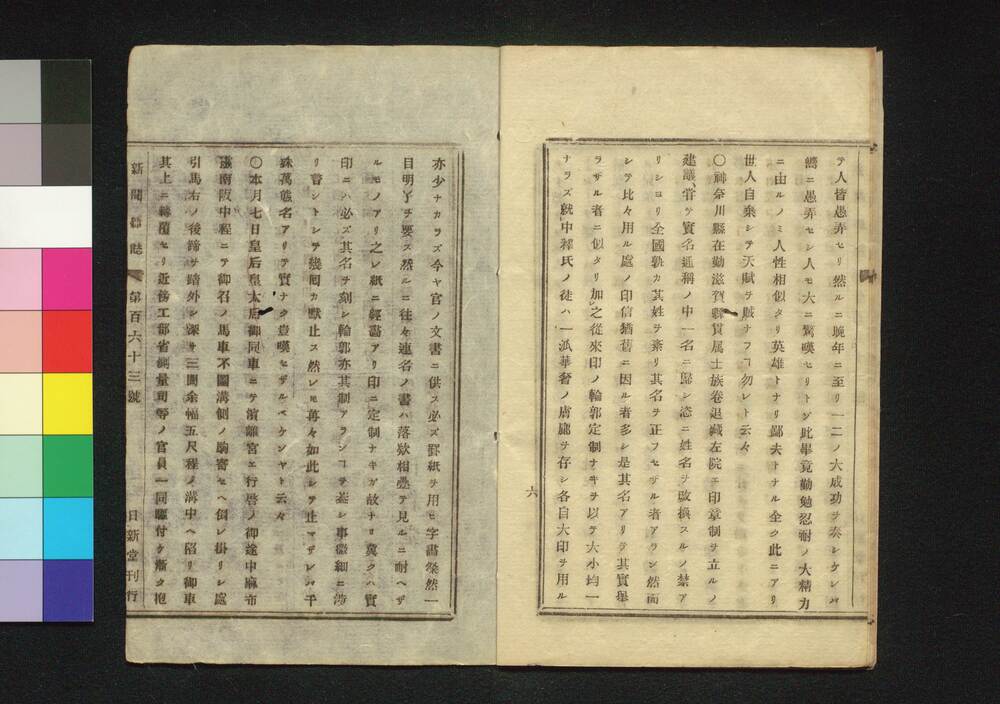 テ人皆愚弄セリ然ルニ晩年ニ至リ一二ノ大成功ヲ奏シケレバ
嚮ニ愚弄セシ人モ大ニ驚嘆セリトゾ此畢竟勤勉忍耐ノ大精力
ニ由ルノミ人性相似タリ英雄トナリ鄙夫トナル全ク此ニアリ
世人自棄シテ天賦ヲ賊ナフヿ勿レト云々
〇神奈川縣在勤滋賀縣貫属士族卷退藏左院エ印章制ヲ立ルノ
建議、甞テ實名通稱ノ中一名ニ歸シ恣ニ姓名ヲ改換スルノ禁ア
リシヨリ全國孰カ其姓ヲ棄リ其名ヲ正フセザル者アラン然而
シテ比々用ル處ノ印信猶舊ニ因ル者多シ是其名アリテ其實舉
ラザル者ニ似タリ加之從來印ノ輪郭定制ナキヲ以テ大小均一
ナラズ就中釋氏ノ徒ハ一派華奢ノ膚廳ヲ存シ各自大印ヲ用ル
六
亦少ナカラズ今ヤ官ノ文書ニ供ス必ズ罫紙ヲ用ヒ字畫粲然一
目明了ヲ要ス然ルニ往々連名ノ書ハ落欵相疊テ見ルニ耐ヘザ
ルモノアリ之レ紙ニ經畧アリ印ニ定制ナキガ故ナリ冀クハ實
印ニハ必ズ其名ヲ刻シ輪郭亦其制アランヿヲ蓋シ事微細ニ渉
リ甞シトシテ幾囘カ默止ス然レ𪜈苒々如此シテ止マザレバ千
殊萬態名アリテ實ナク豈嘆セザルベケンヤト云々
〇本月七日皇后皇太后御同車ニテ濱離宮エ行啓ノ御途中麻布
盛南阪中程ニテ御召ノ馬車不圖溝側ノ駒寄セヘ倒レ掛リシ處
引馬右ノ後蹄ヲ踏外シ深サ三間余幅五尺程ノ溝中ヘ陷リ御車
其上ニ轉覆セリ近傍工部省測量司等ノ官員一同驅付ケ漸ク抱
新聞雜誌 第百六十三號 日新堂刊行